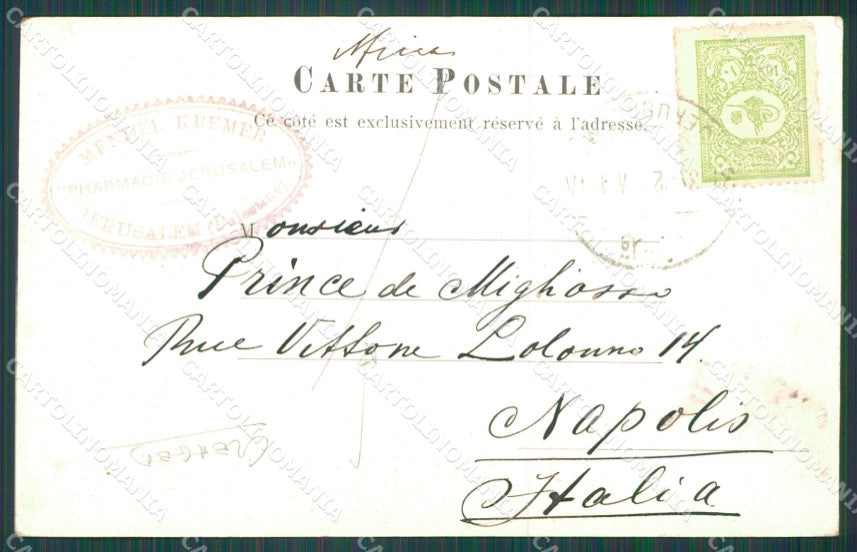 CARTE POSTALE
Ce côté est exclusivement réservé à l'adresse.
MENDEL KREMER
"PHARMACIE JERUSALEM"
JERUSALEM (Palestine)
Monsieur
Prince de Mighosso
Rue Vittone Lolonno 14.
Napolis
Italia
CARTOLINOMANIA